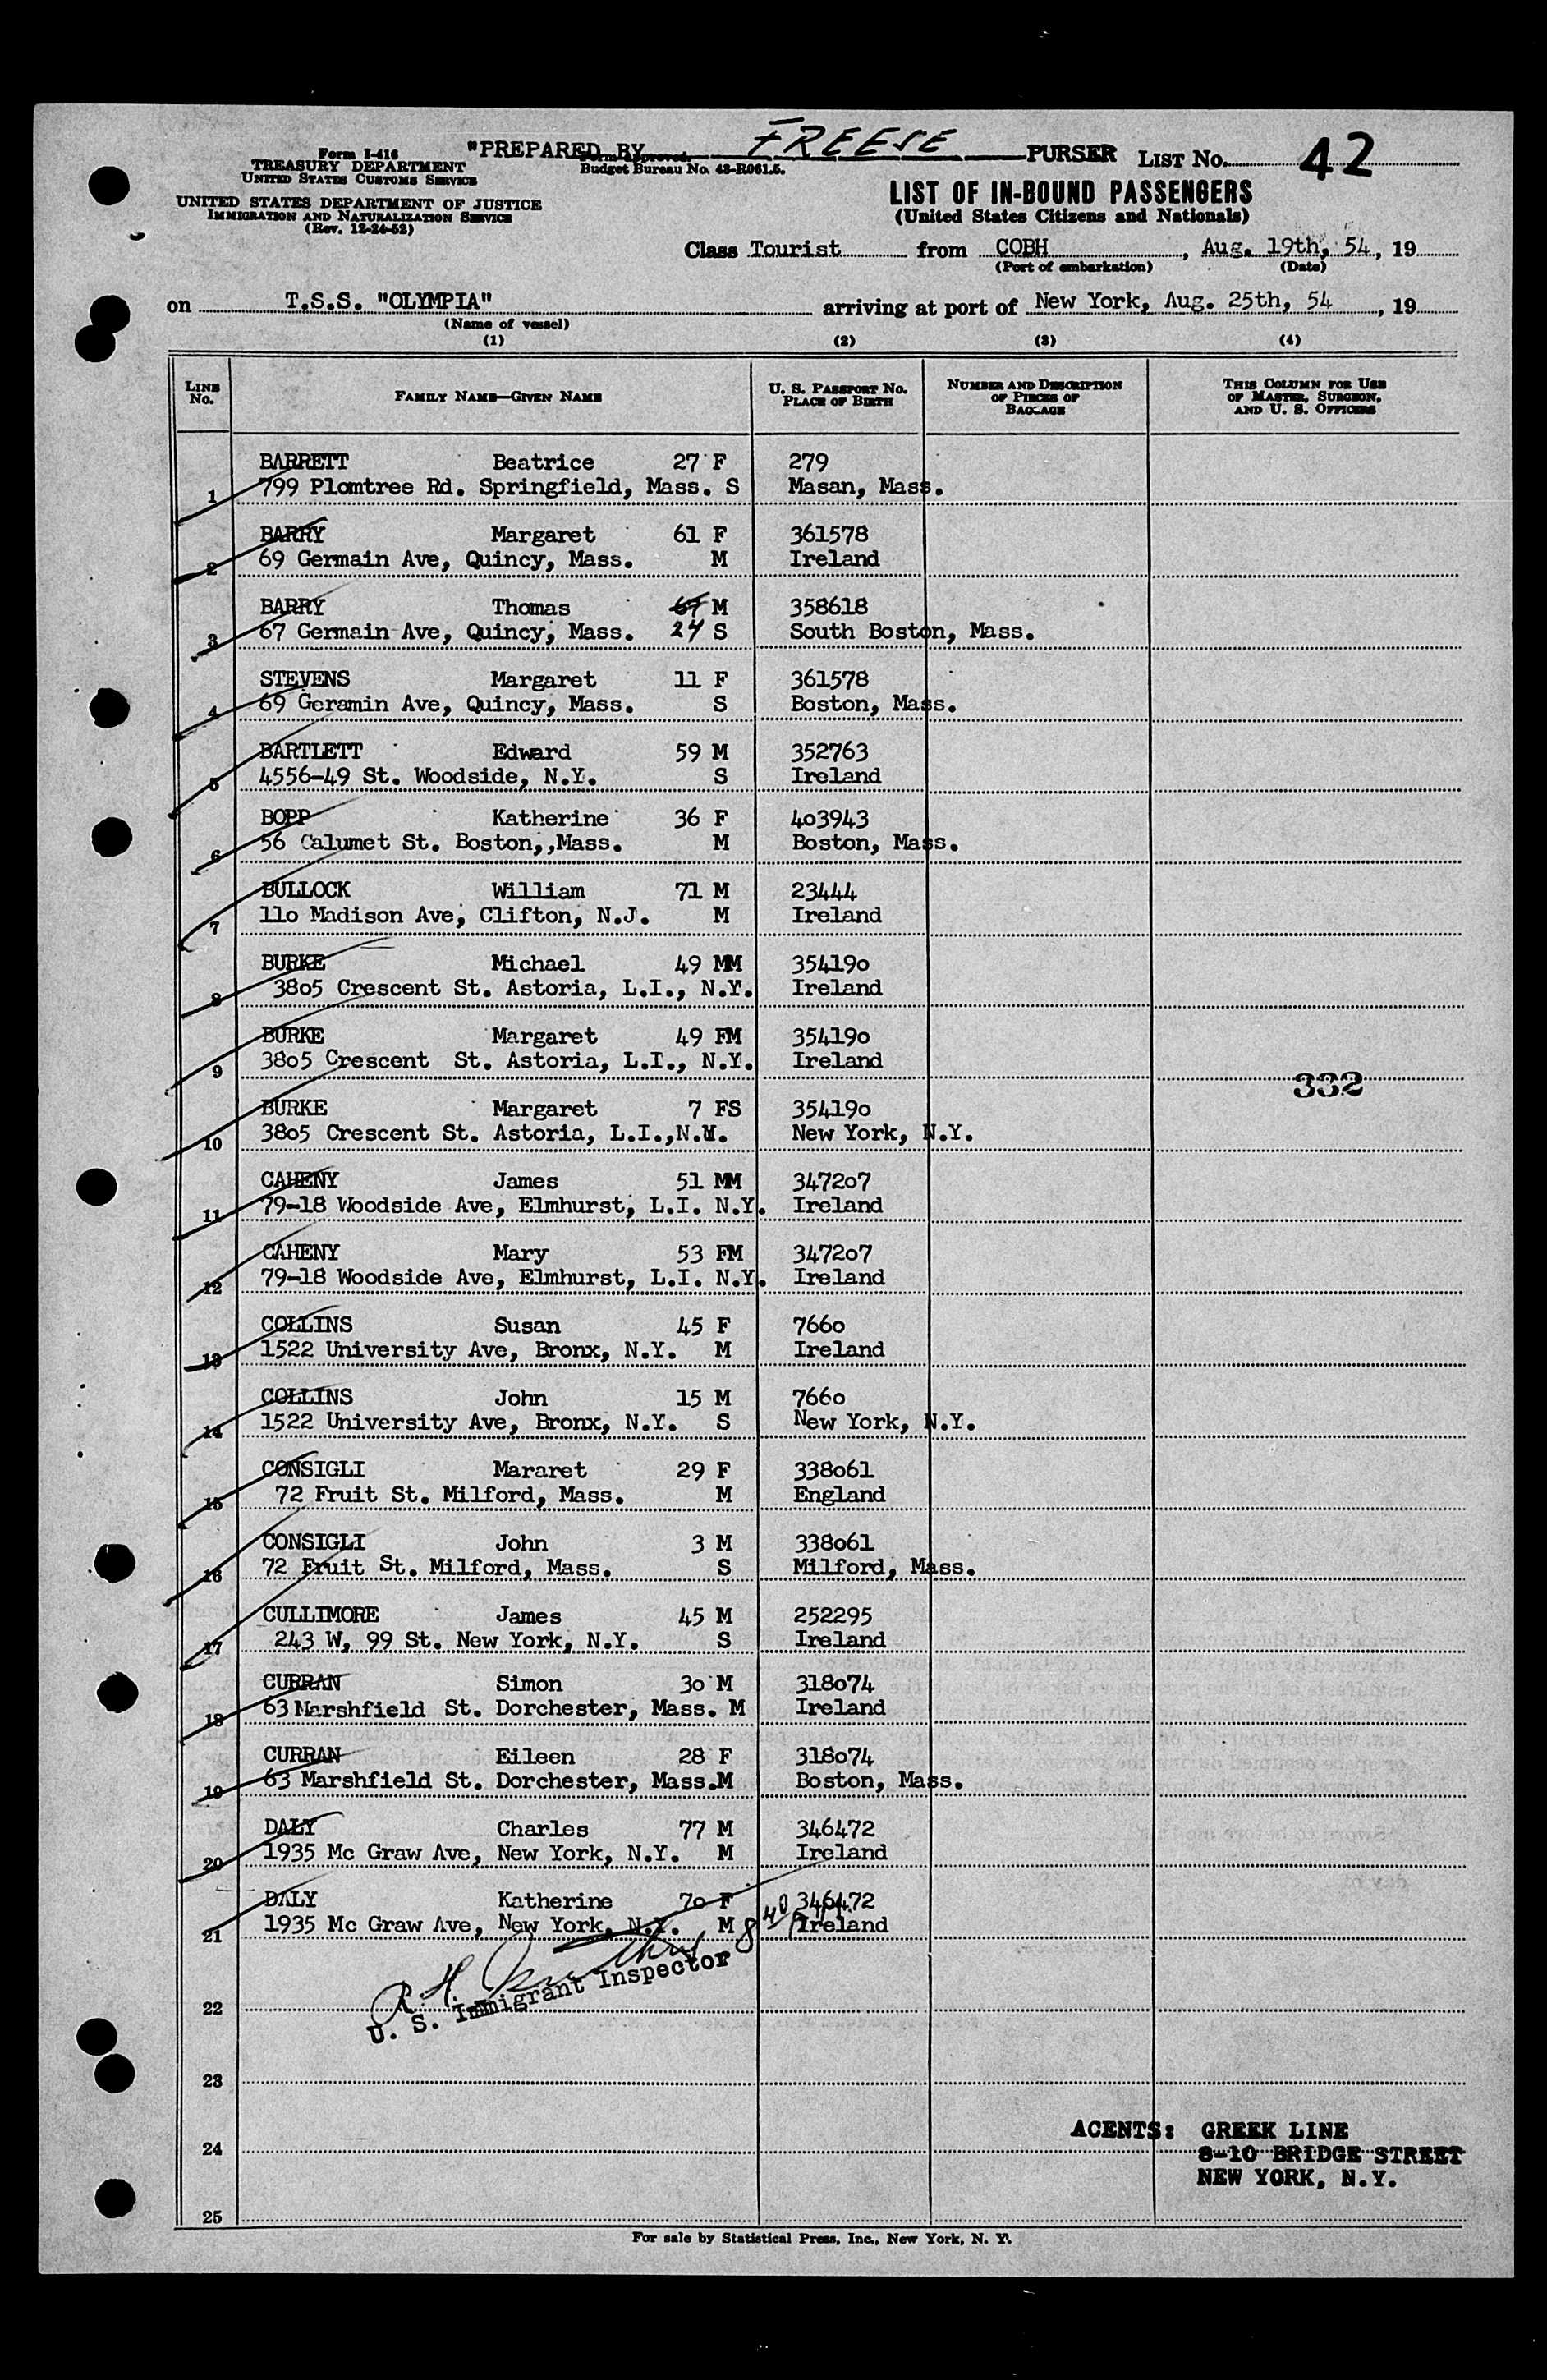 "PREPARED BY FREESE PURSER LIST No. 42
Form I-416
TREASURY DEPARTMENT
UNITED STATES CUSTOMS SERVICE
Form approved.
Budget Bureau No. 43-R061.5.
UNITED STATES DEPARTMENT OF JUSTICE
IMMIGRATION AND NATURALIZATION SERVICE
(Rev. 12-24-52)
LIST OF IN-BOUND PASSENGERS
(United States Citizens and Nationals)
Class Tourist from COBH, Aug. 19th, 54, 19
(Port of embarkation) (Date)
on T.S.S. "OLYMPIA" arriving at port of New York, Aug. 25th, 54, 19
(Name of vessel)
(1) (2) (3) (4)
LINE No. FAMILY NAME—GIVEN NAME U. S. PASSPORT No. PLACE OF BIRTH NUMBER AND DESCRIPTION OF PIECES OF BAGGAGE THIS COLUMN FOR USE OF MASTER, SURGEON, AND U. S. OFFICERS
BARRETT Beatrice 27 F 279
1 799 Plomtree Rd. Springfield, Mass. S Masan, Mass.
BARRY Margaret 61 F 361578
2 69 Germain Ave, Quincy, Mass. M Ireland
BARRY Thomas 67 M 358618
3 67 Germain Ave, Quincy, Mass. 24 S South Boston, Mass.
STEVENS Margaret 11 F 361578
4 69 Geramin Ave, Quincy, Mass. S Boston, Mass.
BARTLETT Edward 59 M 352763
5 4556-49 St. Woodside, N.Y. S Ireland
BOPP Katherine 36 F 4o3943
6 56 Calumet St. Boston,,Mass. M Boston, Mass.
BULLOCK William 71 M 23444
7 11o Madison Ave, Clifton, N.J. M Ireland
BURKE Michael 49 MM 35419o
8 38o5 Crescent St. Astoria, L.I., N.Y. Ireland
BURKE Margaret 49 FM 35419o
9 38o5 Crescent St. Astoria, L.I., N.Y. Ireland
332
BURKE Margaret 7 FS 35419o
10 38o5 Crescent St. Astoria, L.I.,N.Y. New York, N.Y.
CAHENY James 51 MM 3472o7
11 79-18 Woodside Ave, Elmhurst, L.I. N.Y. Ireland
CAHENY Mary 53 FM 3472o7
12 79-18 Woodside Ave, Elmhurst, L.I. N.Y. Ireland
COLLINS Susan 45 F 766o
13 1522 University Ave, Bronx, N.Y. M Ireland
COLLINS John 15 M 766o
14 1522 University Ave, Bronx, N.Y. S New York, N.Y.
CONSIGLI Mararet 29 F 338o61
15 72 Fruit St. Milford, Mass. M England
CONSIGLI John 3 M 338o61
16 72 Fruit St. Milford, Mass. S Milford, Mass.
CULLIMORE James 45 M 252295
17 243 W, 99 St. New York, N.Y. S Ireland
CURRAN Simon 3o M 318o74
18 63 Marshfield St. Dorchester, Mass. M Ireland
CURRAN Eileen 28 F 318o74
19 63 Marshfield St. Dorchester, Mass.M Boston, Mass.
DALY Charles 77 M 346472
20 1935 Mc Graw Ave, New York, N.Y. M Ireland
DALY Katherine 7o F 346472
21 1935 Mc Graw Ave, New York, N.Y. M Ireland
R. H.
U. S. Immigrant Inspector
22
23
24
AGENTS: GREEK LINE
8-10 BRIDGE STREET
NEW YORK, N.Y.
25
For sale by Statistical Press, Inc., New York, N. Y.